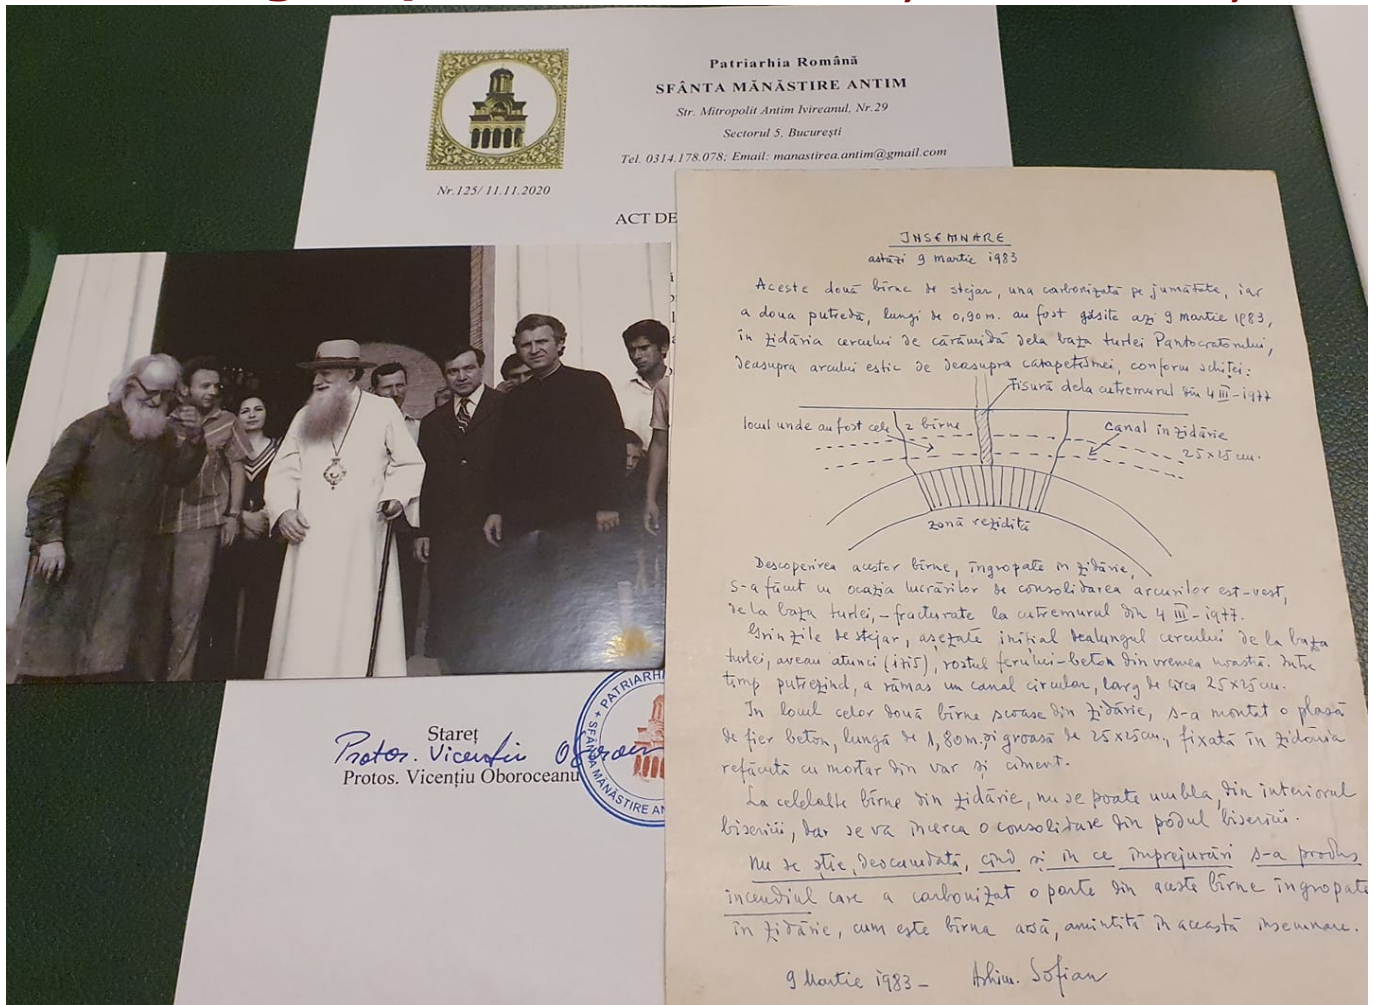 Patriarhia Română
SFÂNTA MĂNĂSTIRE ANTIM
Str. Mitropolit Antim Ivireanul, Nr.29
Sectorul 5, București
Tel. 0314.178.078; Email: manastirea.antim@gmail.com
Nr.125/ 11.11.2020
ACT DE
INSEMNARE
astăzi 9 martie 1983
Aceste două bîrne de stejar, una carbonizată pe jumătate, iar
a doua putredă, lungi de 0,90m. au fost găsite azi 9 martie 1983,
în zidăria cercului de cărămidă dela baza turlei Pantocratorului,
deasupra arcului estic de deasupra catapetesmei, conform schiței:
Fisură dela cutremurul din 4 III-1977
locul unde au fost cele 2 bîrne
canal în zidărie
25x25 cm.
zonă rezidită
Descoperirea acestor bîrne, îngropate în zidărie,
s-a făcut cu ocazia lucrărilor de consolidarea arcurilor est-vest,
de la baza turlei, - fracturate la cutremurul din 4 III-1977.
Grinzile de stejar, așezate inițial dealungul cercului de la baza
turlei, aveau atunci (1715), rostul ferului-beton din vremea noastră. Intre
timp putrezind, a rămas un canal circular, larg de circa 25x25 cm.
In locul celor două bîrne scoase din zidărie, s-a montat o plasă
de fier beton, lungă de 1,80m. și groasă de 25x25cm, fixată în zidăria
refăcută cu mortar din var și ciment.
La celelalte bîrne din zidărie, nu se poate umbla, din interiorul
bisericii, dar se va încerca o consolidare din podul bisericii.
Nu se știe, deocamdată, cînd și în ce împrejurări s-a produs
incendiul care a carbonizat o parte din aceste bîrne îngropate
în zidărie, cum este bîrna arsă, amintită în această insemnare.
9 Martie 1983 - Arhim. Sofian
Stareț
Protos. Vicențiu
Protos. Vicențiu Oboroceanu
PATRIARHI
SFÂNTA MĂNĂSTIRE AN